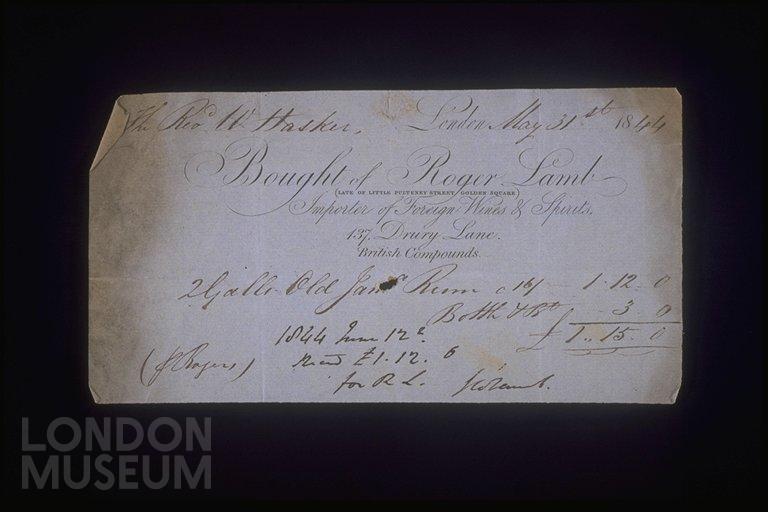 The Revd. W. Hasker, London May 31st 1844
Bought of Roger Lamb
(LATE OF LITTLE PULTENEY STREET, GOLDEN SQUARE)
Importer of Foreign Wines & Spirits,
137, Drury Lane.
British Compounds.
2 Galls. Old Jamca Rum 16/ 1.12.0
Bottle & 3.0
£1.15.0
1844 June 12
Recd £1.12.6
for R L.
LONDON
MUSEUM